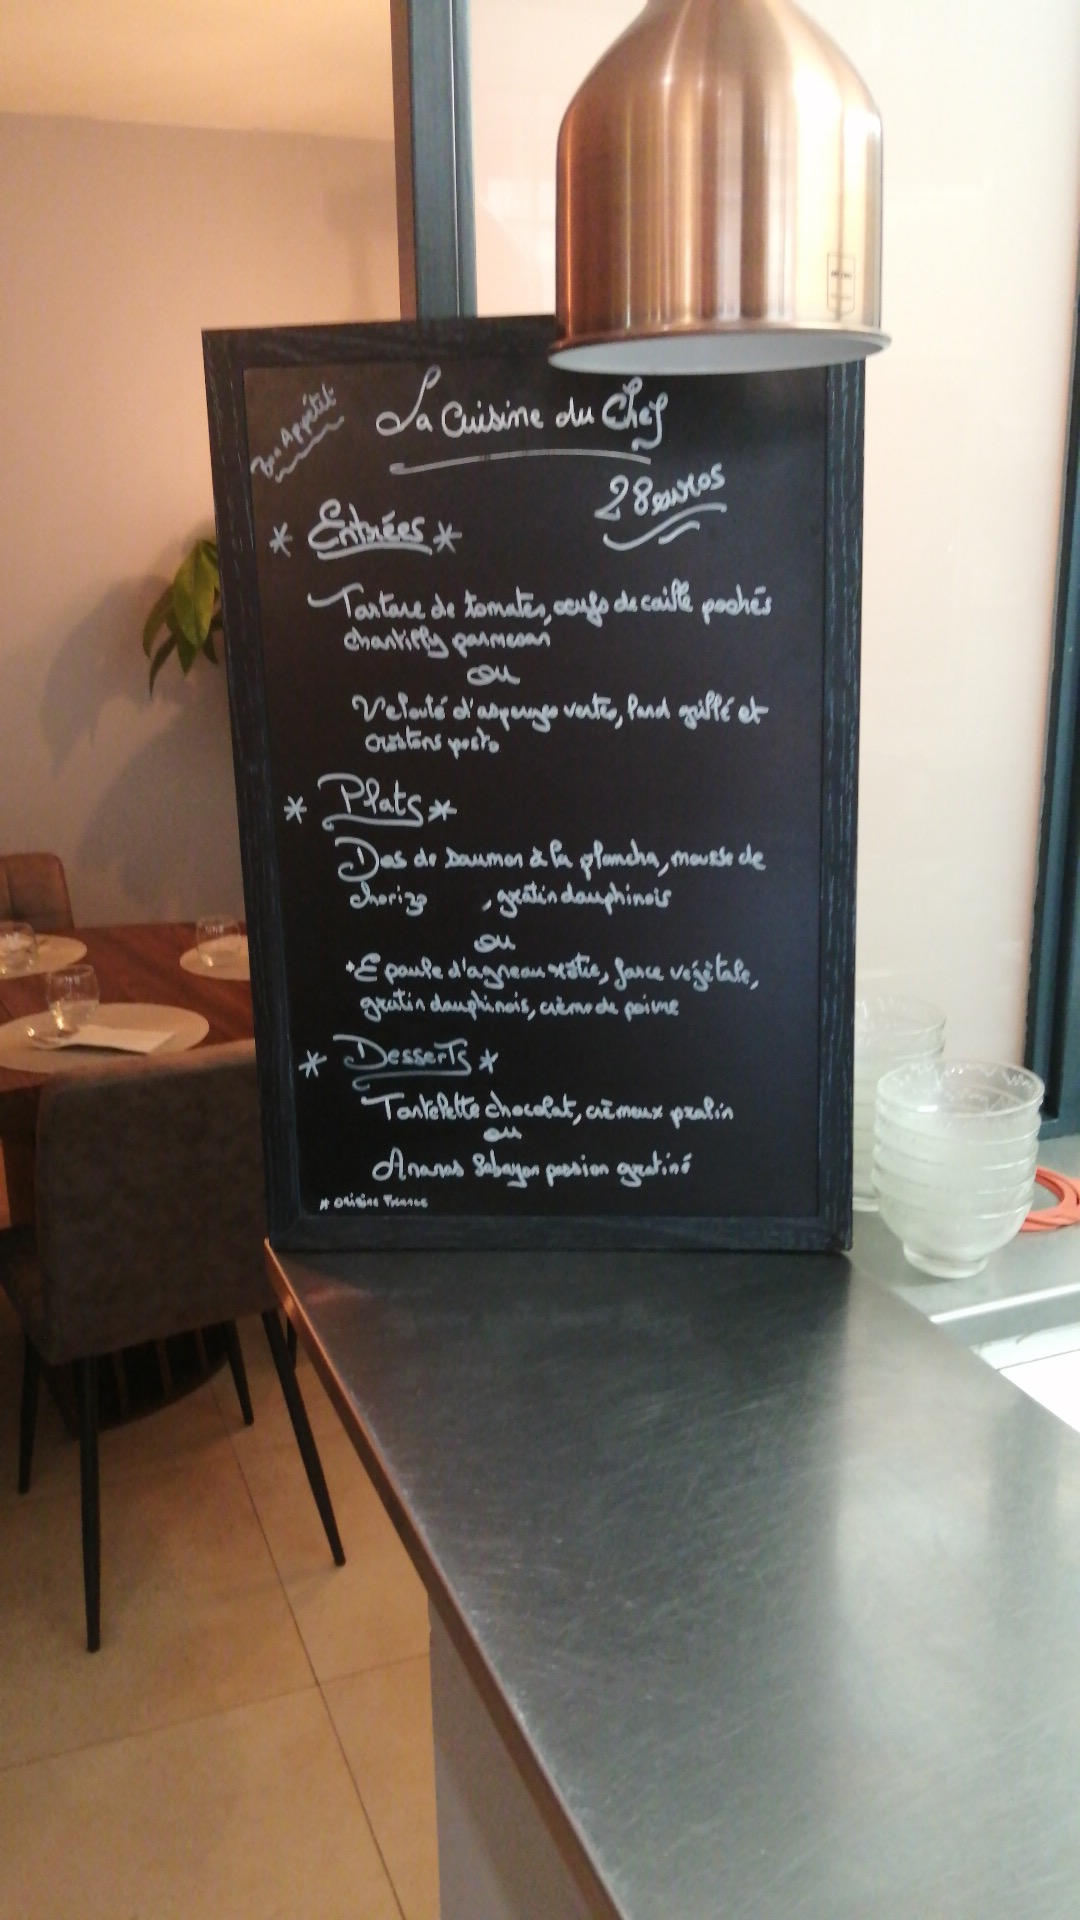 Bon Appétit
La Cuisine du Chef
28 euros
* Entrées *
Tartare de tomates, oeufs de caille pochés
chantilly parmesan
ou
Velouté d'asperges vertes, lard grillé et
croûtons pesto
* Plats *
Dos de saumon à la plancha, mousse de
chorizo , gratin dauphinois
ou
*Epaule d'agneau rôtie, farce végétale,
gratin dauphinois, crème de poivre
* Desserts *
Tartelette chocolat, crémeux pralin
ou
Ananas Sabayon passion gratiné
* origine France